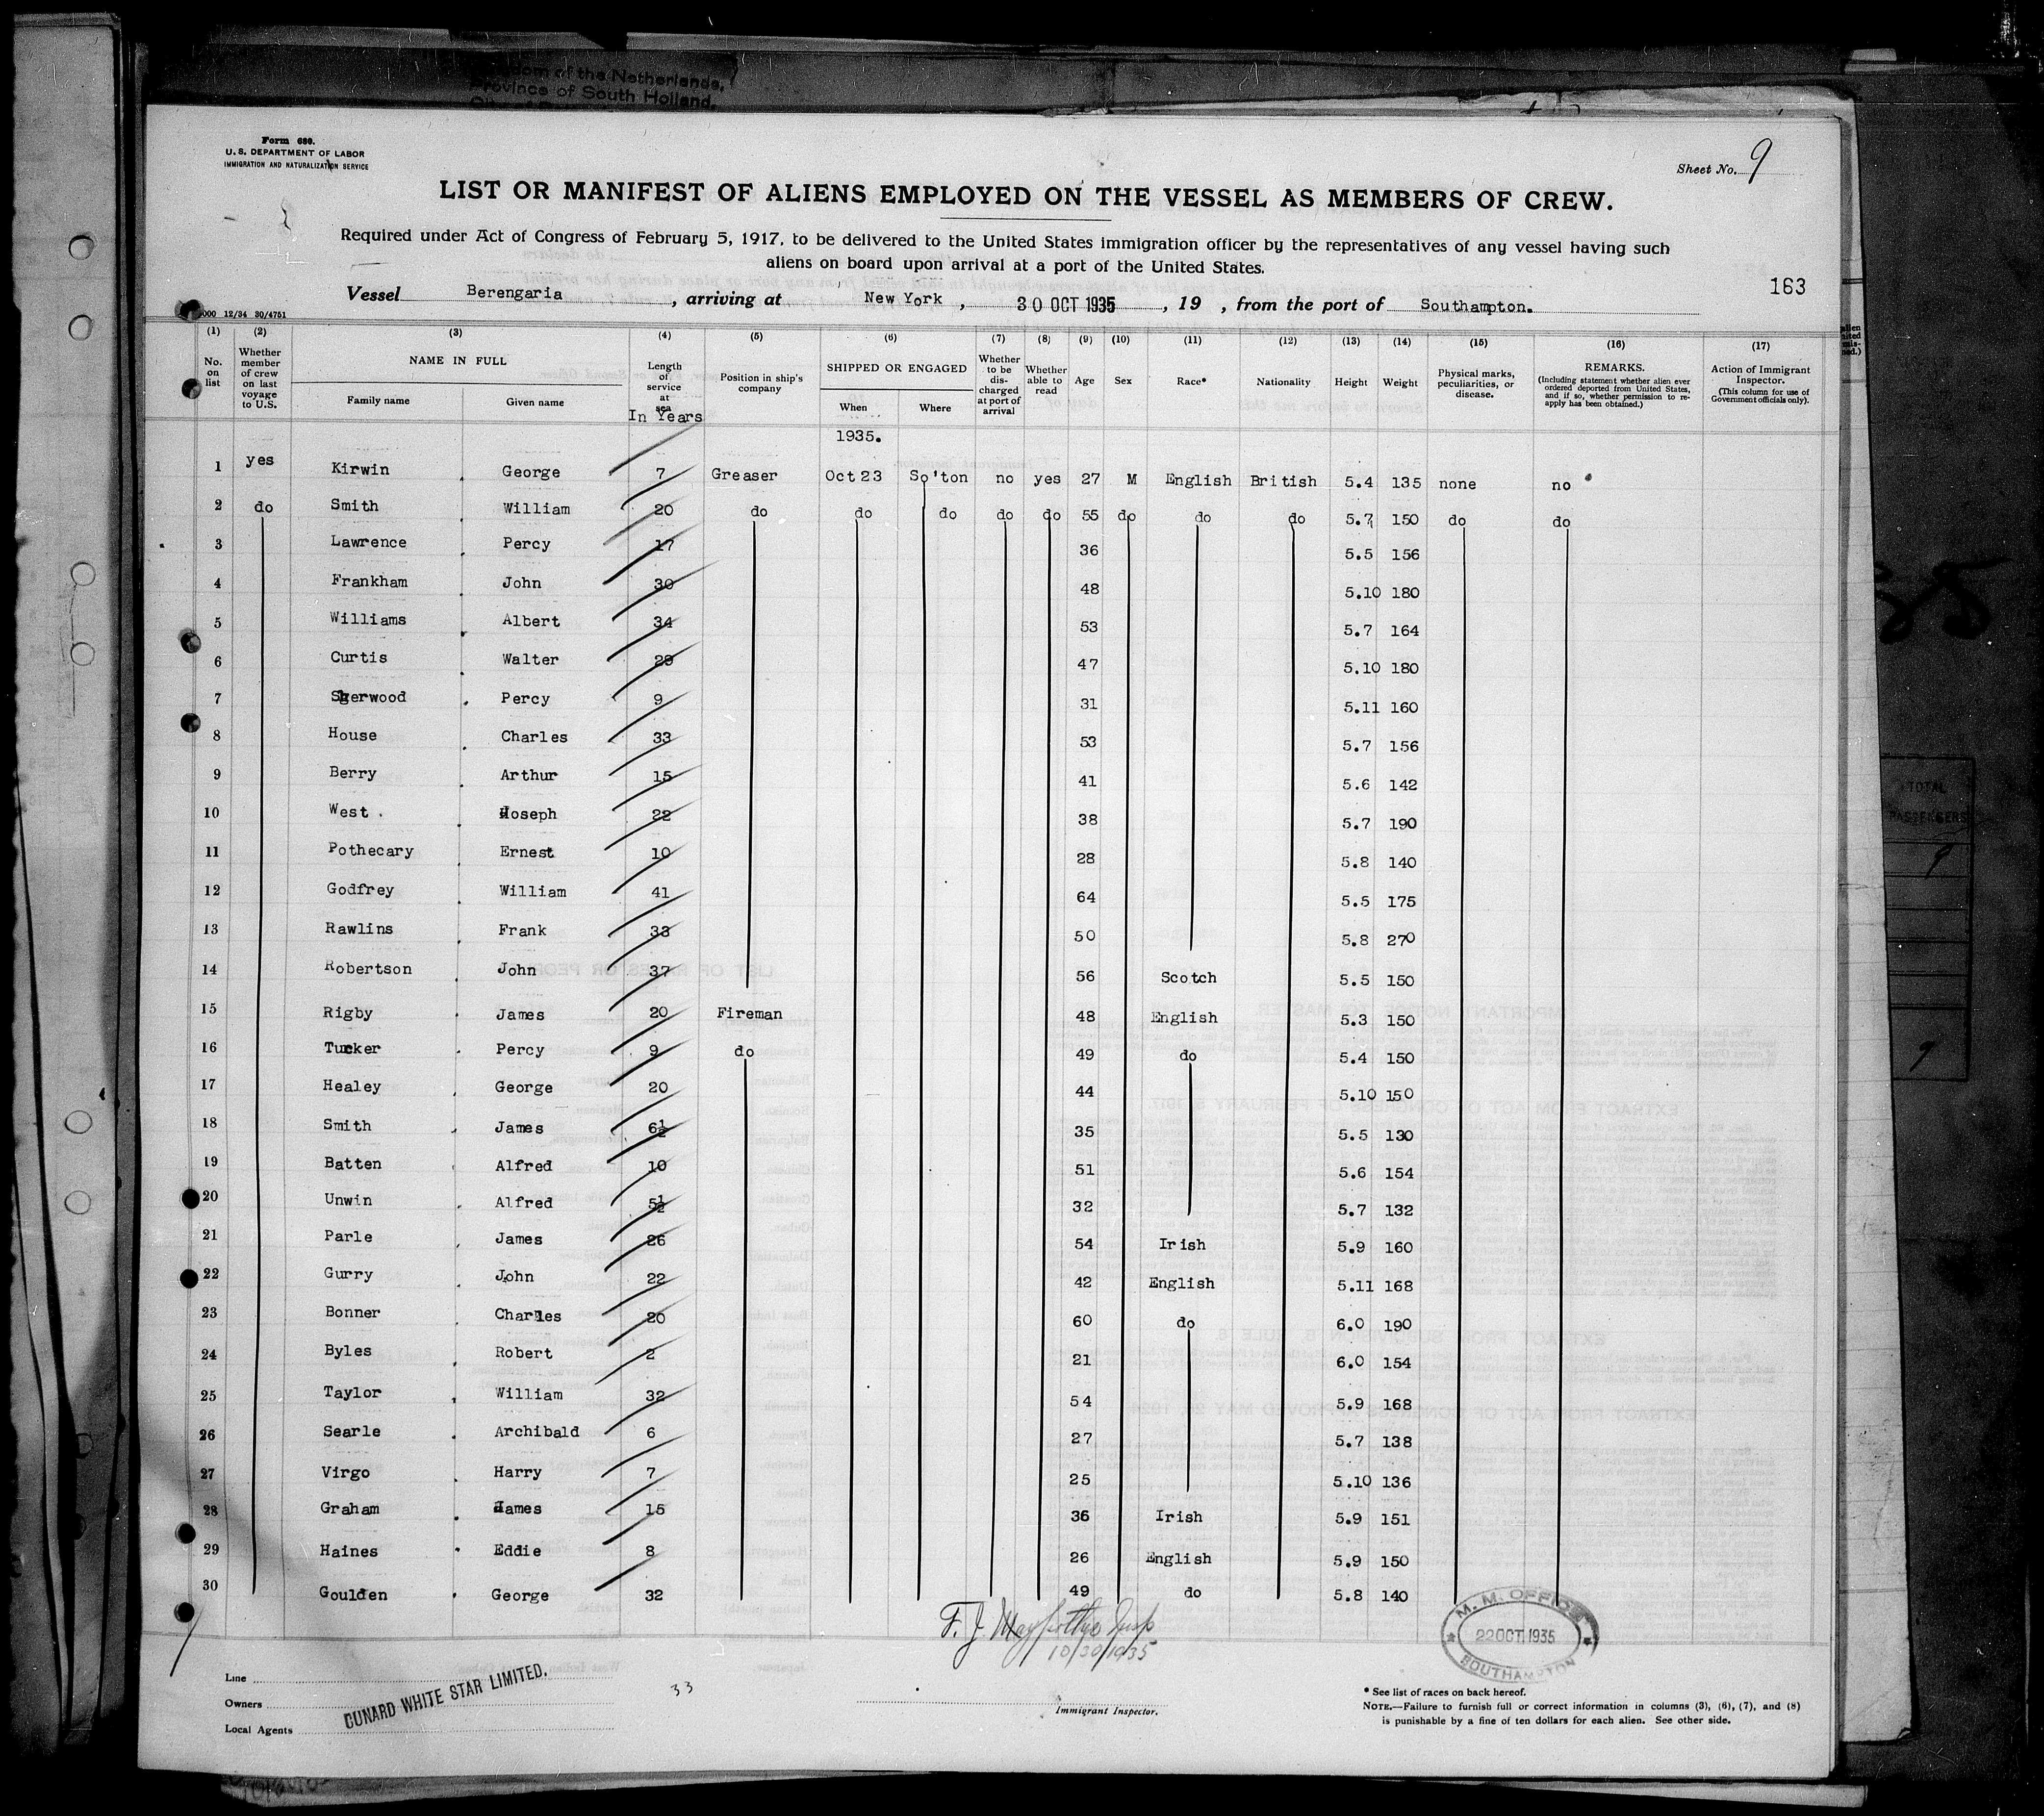 dom of the Netherlands,
Province of South Holland,
Form 680.
U. S. DEPARTMENT OF LABOR
IMMIGRATION AND NATURALIZATION SERVICE
Sheet No. 9
LIST OR MANIFEST OF ALIENS EMPLOYED ON THE VESSEL AS MEMBERS OF CREW.
Required under Act of Congress of February 5, 1917, to be delivered to the United States immigration officer by the representatives of any vessel having such
aliens on board upon arrival at a port of the United States.
163
Vessel Berengaria , arriving at New York , 30 OCT 1935 , 19 , from the port of Southampton.
000 12/34 30/4751
(1) (2) (3) (4) (5) (6) (7) (8) (9) (10) (11) (12) (13) (14) (15) (16) (17)
No. on list Whether member of crew on last voyage to U.S. NAME IN FULL Family name Given name Length of service at sea In Years Position in ship's company SHIPPED OR ENGAGED When Where Whether to be discharged at port of arrival Whether able to read Age Sex Race* Nationality Height Weight Physical marks, peculiarities, or disease. REMARKS. (Including statement whether alien ever ordered deported from United States, and if so, whether permission to reapply has been obtained.) Action of Immigrant Inspector. (This column for use of Government officials only).
1935.
1 yes Kirwin , George 7 Greaser Oct 23 So'ton no yes 27 M English British 5.4 135 none no
2 do Smith , William 20 do do do do do 55 do do do 5.7 150 do do
3 Lawrence , Percy 17 36 5.5 156
4 Frankham , John 30 48 5.10 180
5 Williams , Albert 34 53 5.7 164
6 Curtis , Walter 29 47 5.10 180
7 Sherwood , Percy 9 31 5.11 160
8 House , Charles 33 53 5.7 156
9 Berry , Arthur 15 41 5.6 142
10 West , Joseph 22 38 5.7 190
11 Pothecary , Ernest 10 28 5.8 140
12 Godfrey , William 41 64 5.5 175
13 Rawlins , Frank 33 50 5.8 270
14 Robertson , John 37 56 Scotch 5.5 150
15 Rigby , James 20 Fireman 48 English 5.3 150
16 Tucker , Percy 9 do 49 do 5.4 150
17 Healey , George 20 44 5.10 150
18 Smith , James 6½ 35 5.5 130
19 Batten , Alfred 10 51 5.6 154
20 Unwin , Alfred 5½ 32 5.7 132
21 Parle , James 26 54 Irish 5.9 160
22 Gurry , John 22 42 English 5.11 168
23 Bonner , Charles 20 60 do 6.0 190
24 Byles , Robert 2 21 6.0 154
25 Taylor , William 32 54 5.9 168
26 Searle , Archibald 6 27 5.7 138
27 Virgo , Harry 7 25 5.10 136
28 Graham , James 15 36 Irish 5.9 151
29 Haines , Eddie 8 26 English 5.9 150
30 Goulden , George 32 49 do 5.8 140
F. J. Insp
10/30/1935
M. M. OFFICE
22 OCT 1935
SOUTHAMPTON
Line
Owners CUNARD WHITE STAR LIMITED.
Local Agents
33
Immigrant Inspector.
* See list of races on back hereof.
NOTE.—Failure to furnish full or correct information in columns (3), (6), (7), and (8)
is punishable by a fine of ten dollars for each alien. See other side.
TOTAL
PASSENGERS
9
9